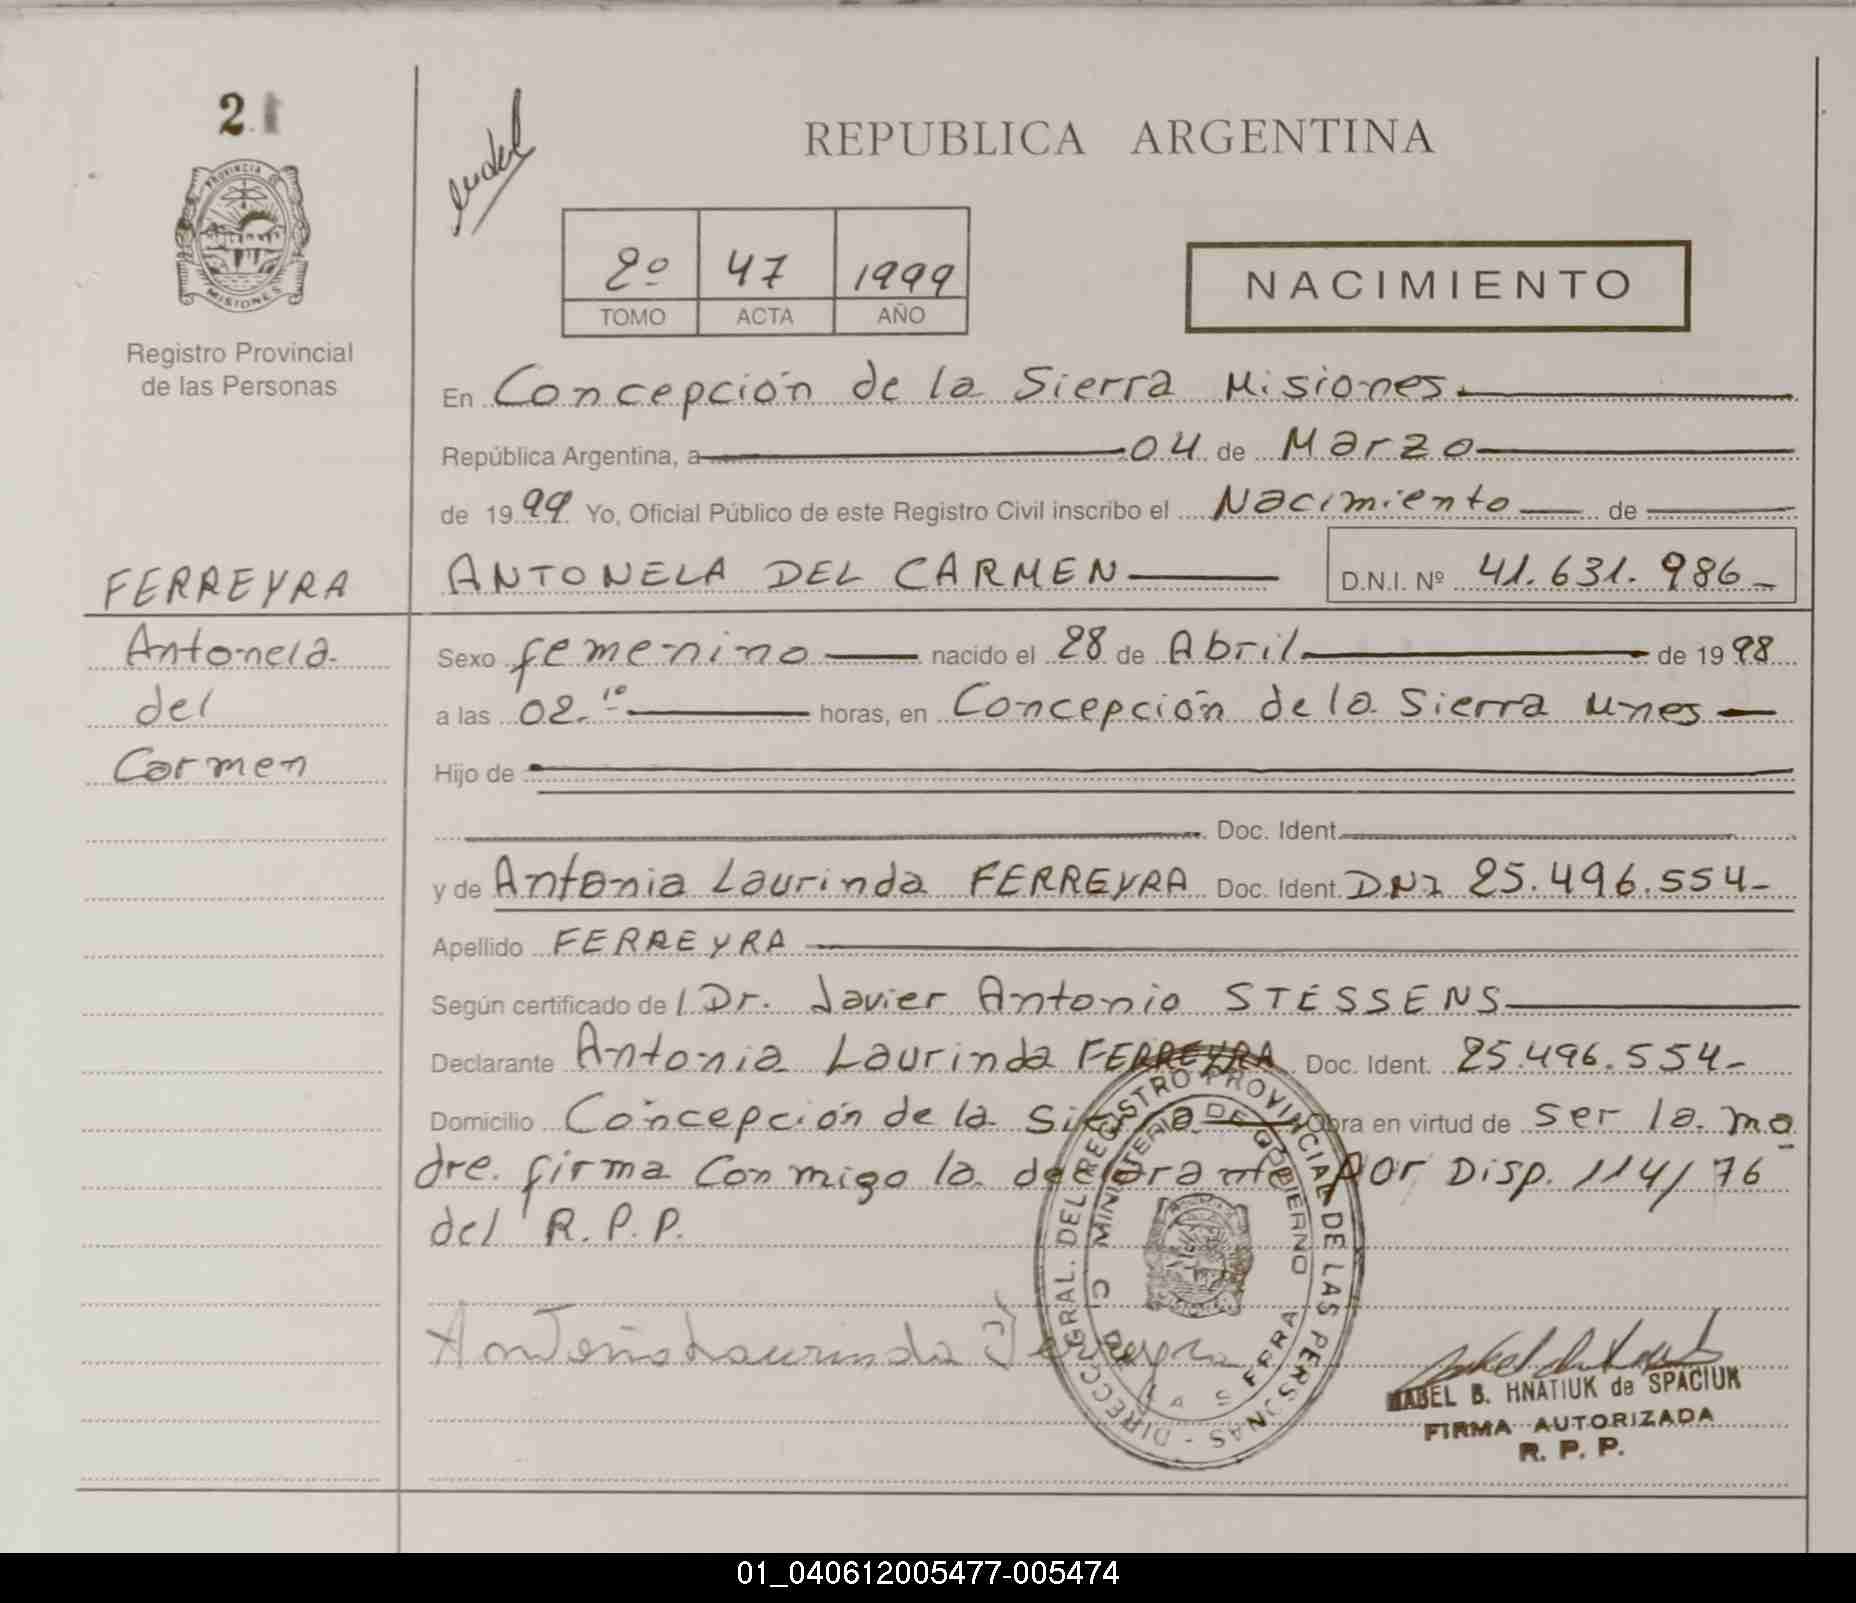 2
PROVINCIA DE
MISIONES
Registro Provincial
de las Personas
REPUBLICA ARGENTINA
2º 47 1999
TOMO ACTA AÑO
NACIMIENTO
En Concepción de la Sierra Misiones
República Argentina, a 04 de Marzo
de 1999 Yo, Oficial Público de este Registro Civil inscribo el Nacimiento de
FERREYRA ANTONELA DEL CARMEN D.N.I. Nº 41.631.986
Antonela Sexo femenino nacido el 28 de Abril de 1998
del a las 02.10 horas, en Concepción de la Sierra Mnes
Carmen Hijo de
Doc. Ident.
y de Antonia Laurinda FERREYRA Doc. Ident. DNI 25.496.554
Apellido FERREYRA
Según certificado de Dr. Javier Antonio STESSENS
Declarante Antonia Laurinda FERREYRA Doc. Ident. 25.496.554
Domicilio Concepción de la Sierra Obra en virtud de ser la ma
dre. firma Conmigo la declarante por Disp. 114/76
del R.P.P.
DIRECC. GRAL. DEL REGISTRO PROVINCIAL DE LAS PERSONAS
MINISTERIO DE GOBIERNO
Antonia Laurinda Ferreyra
MABEL B. HNATIUK de SPACIUK
FIRMA AUTORIZADA
R. P. P.
01_040612005477-005474